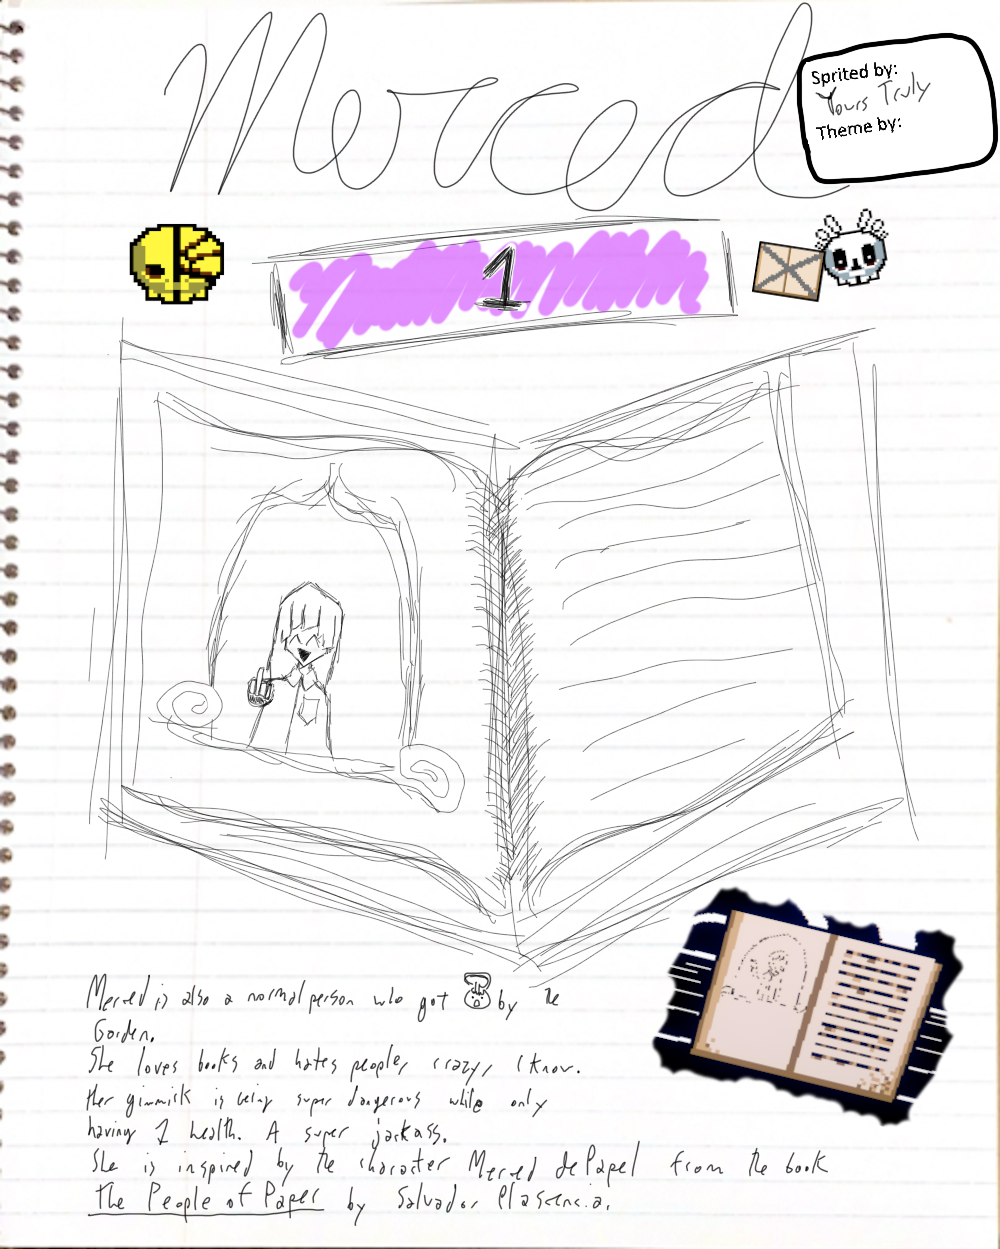 Merced
Sprited by:
Yours Truly
Theme by:
1
Merced is also a normal person who got by the
Garden.
She loves books and hates people, crazy, I know.
Her gimmick is being super dangerous while only
having 1 health. A super jackass.
She is inspired by the character Merced de Papel from the book
The People of Paper by Salvador Plascencia.